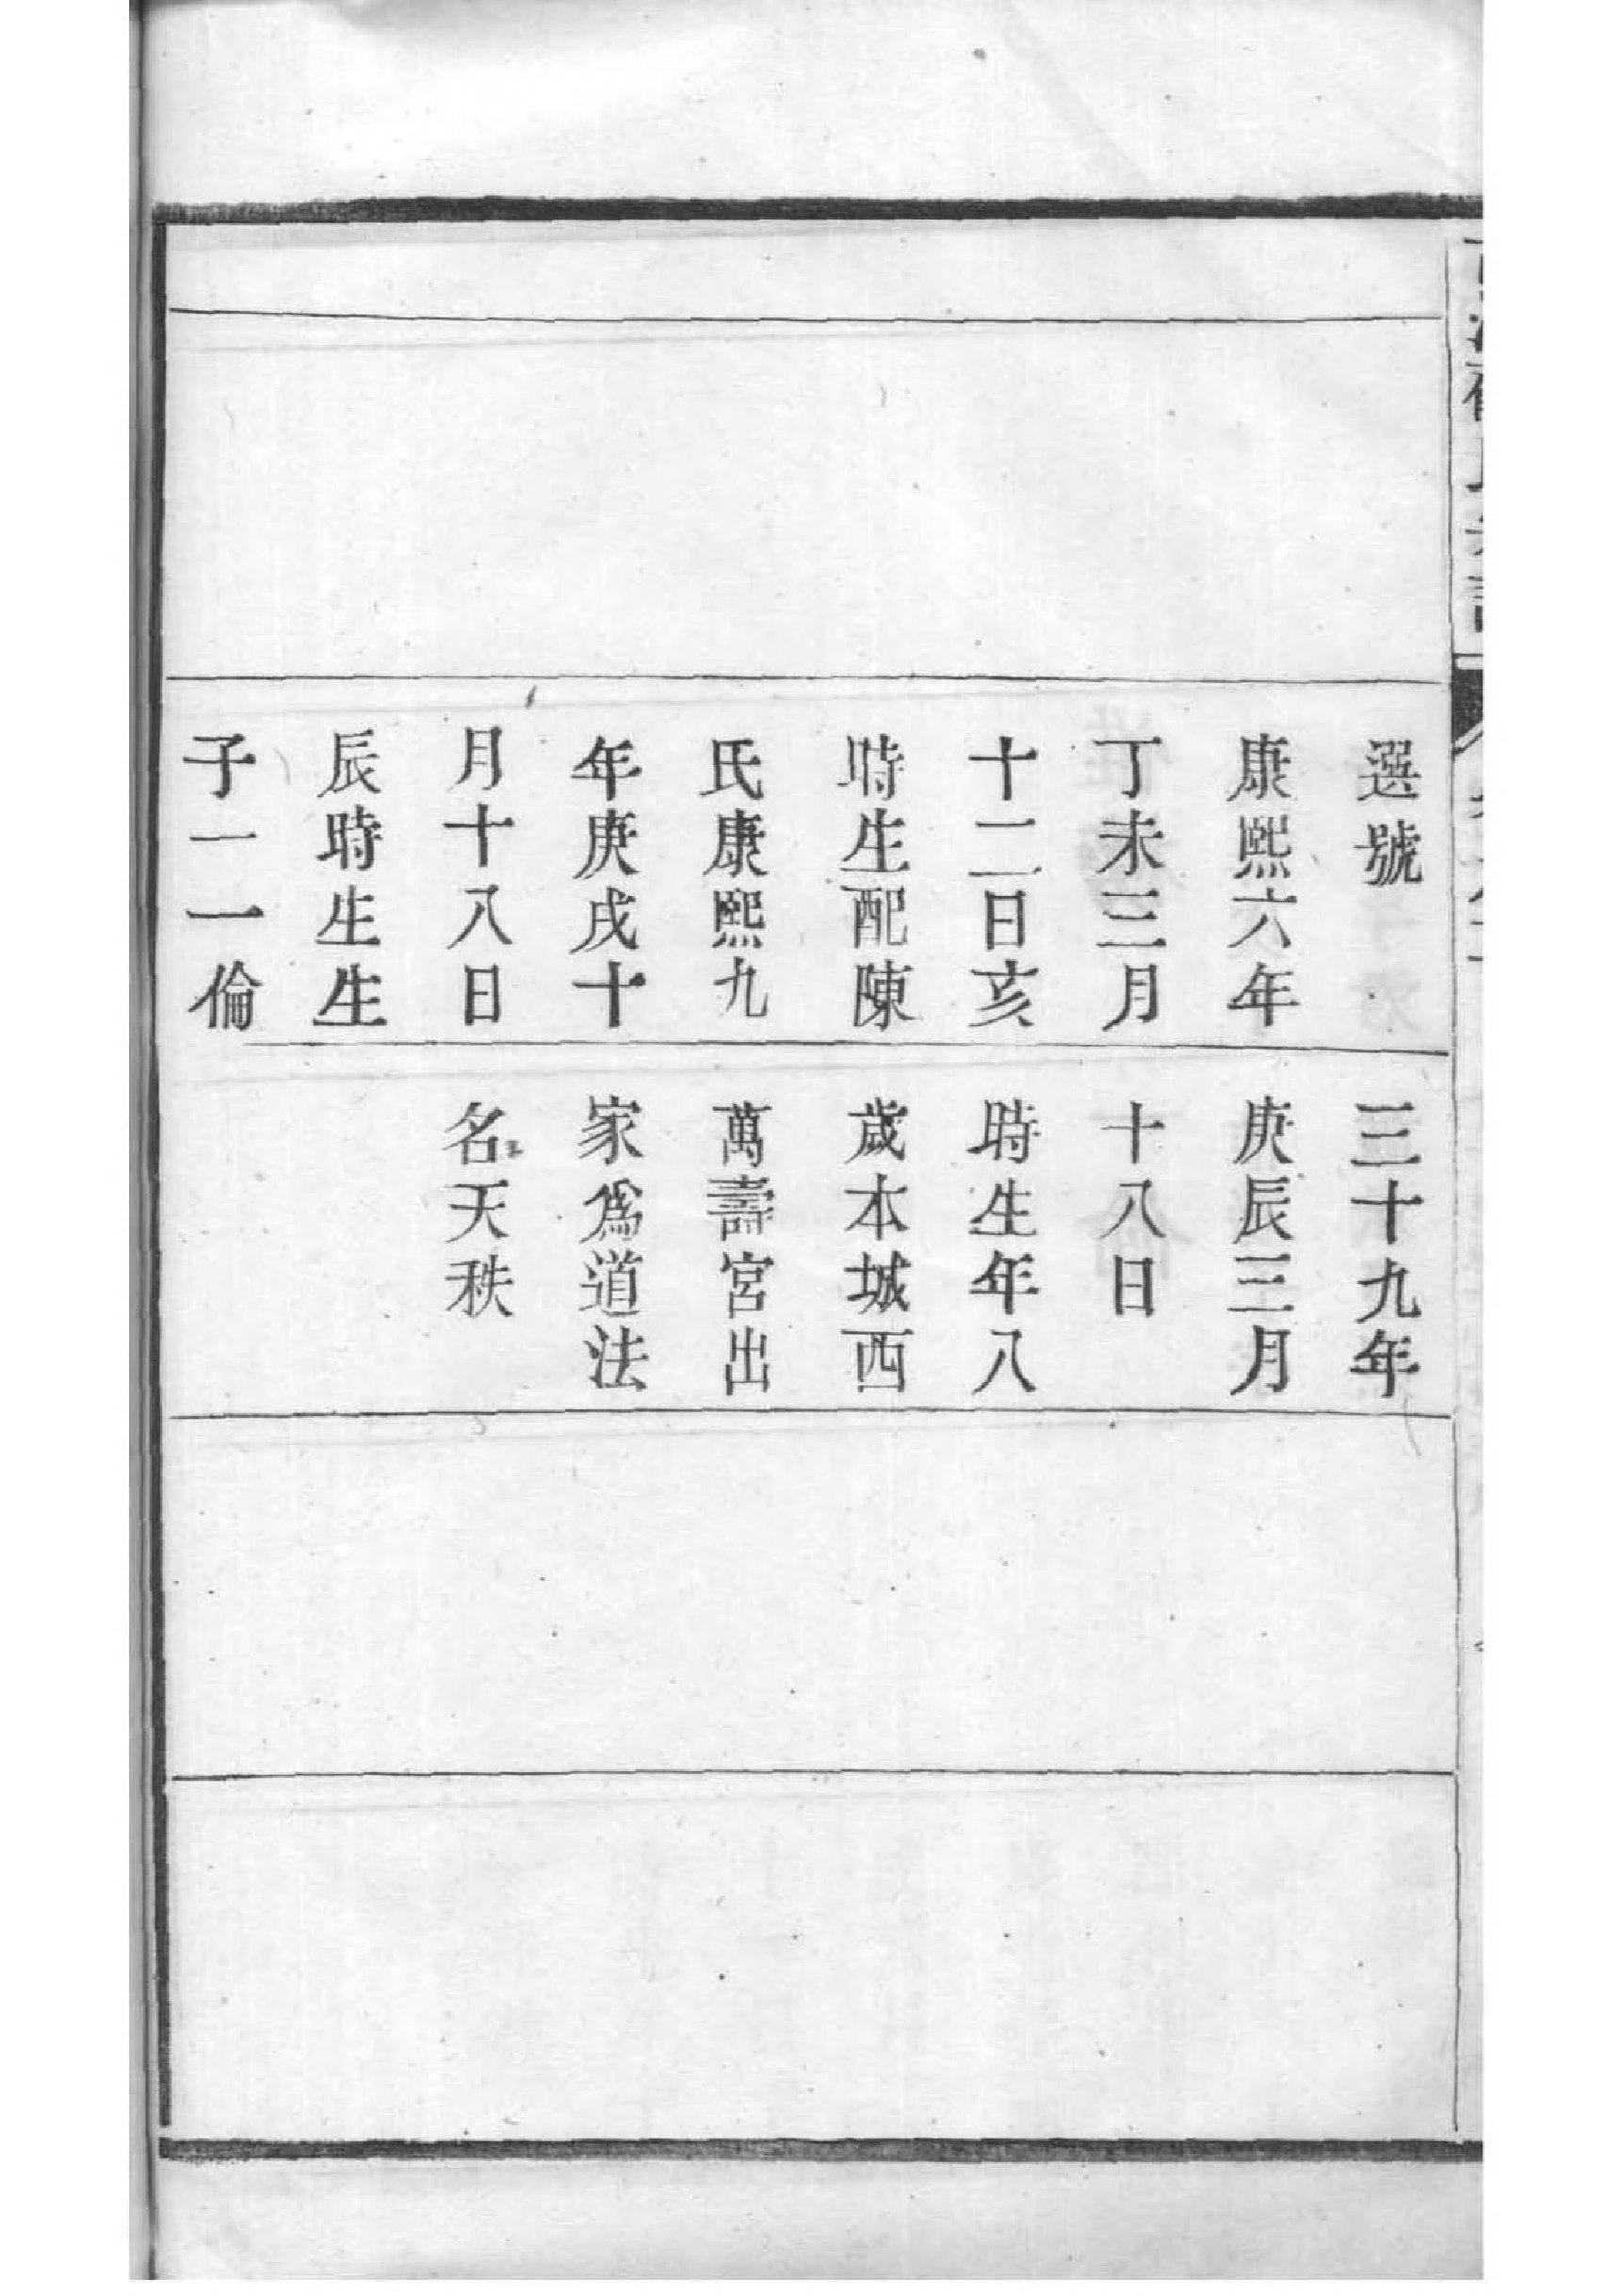 選號
康熙六年
丁未三月
十二日亥
時生配陳
氏康熙九
年庚戌十
月十八日
辰時生生
子一一倫
三十九年
庚辰三月
十八日
時生年八
歲本城西
萬壽宮出
家爲道法
名天秩